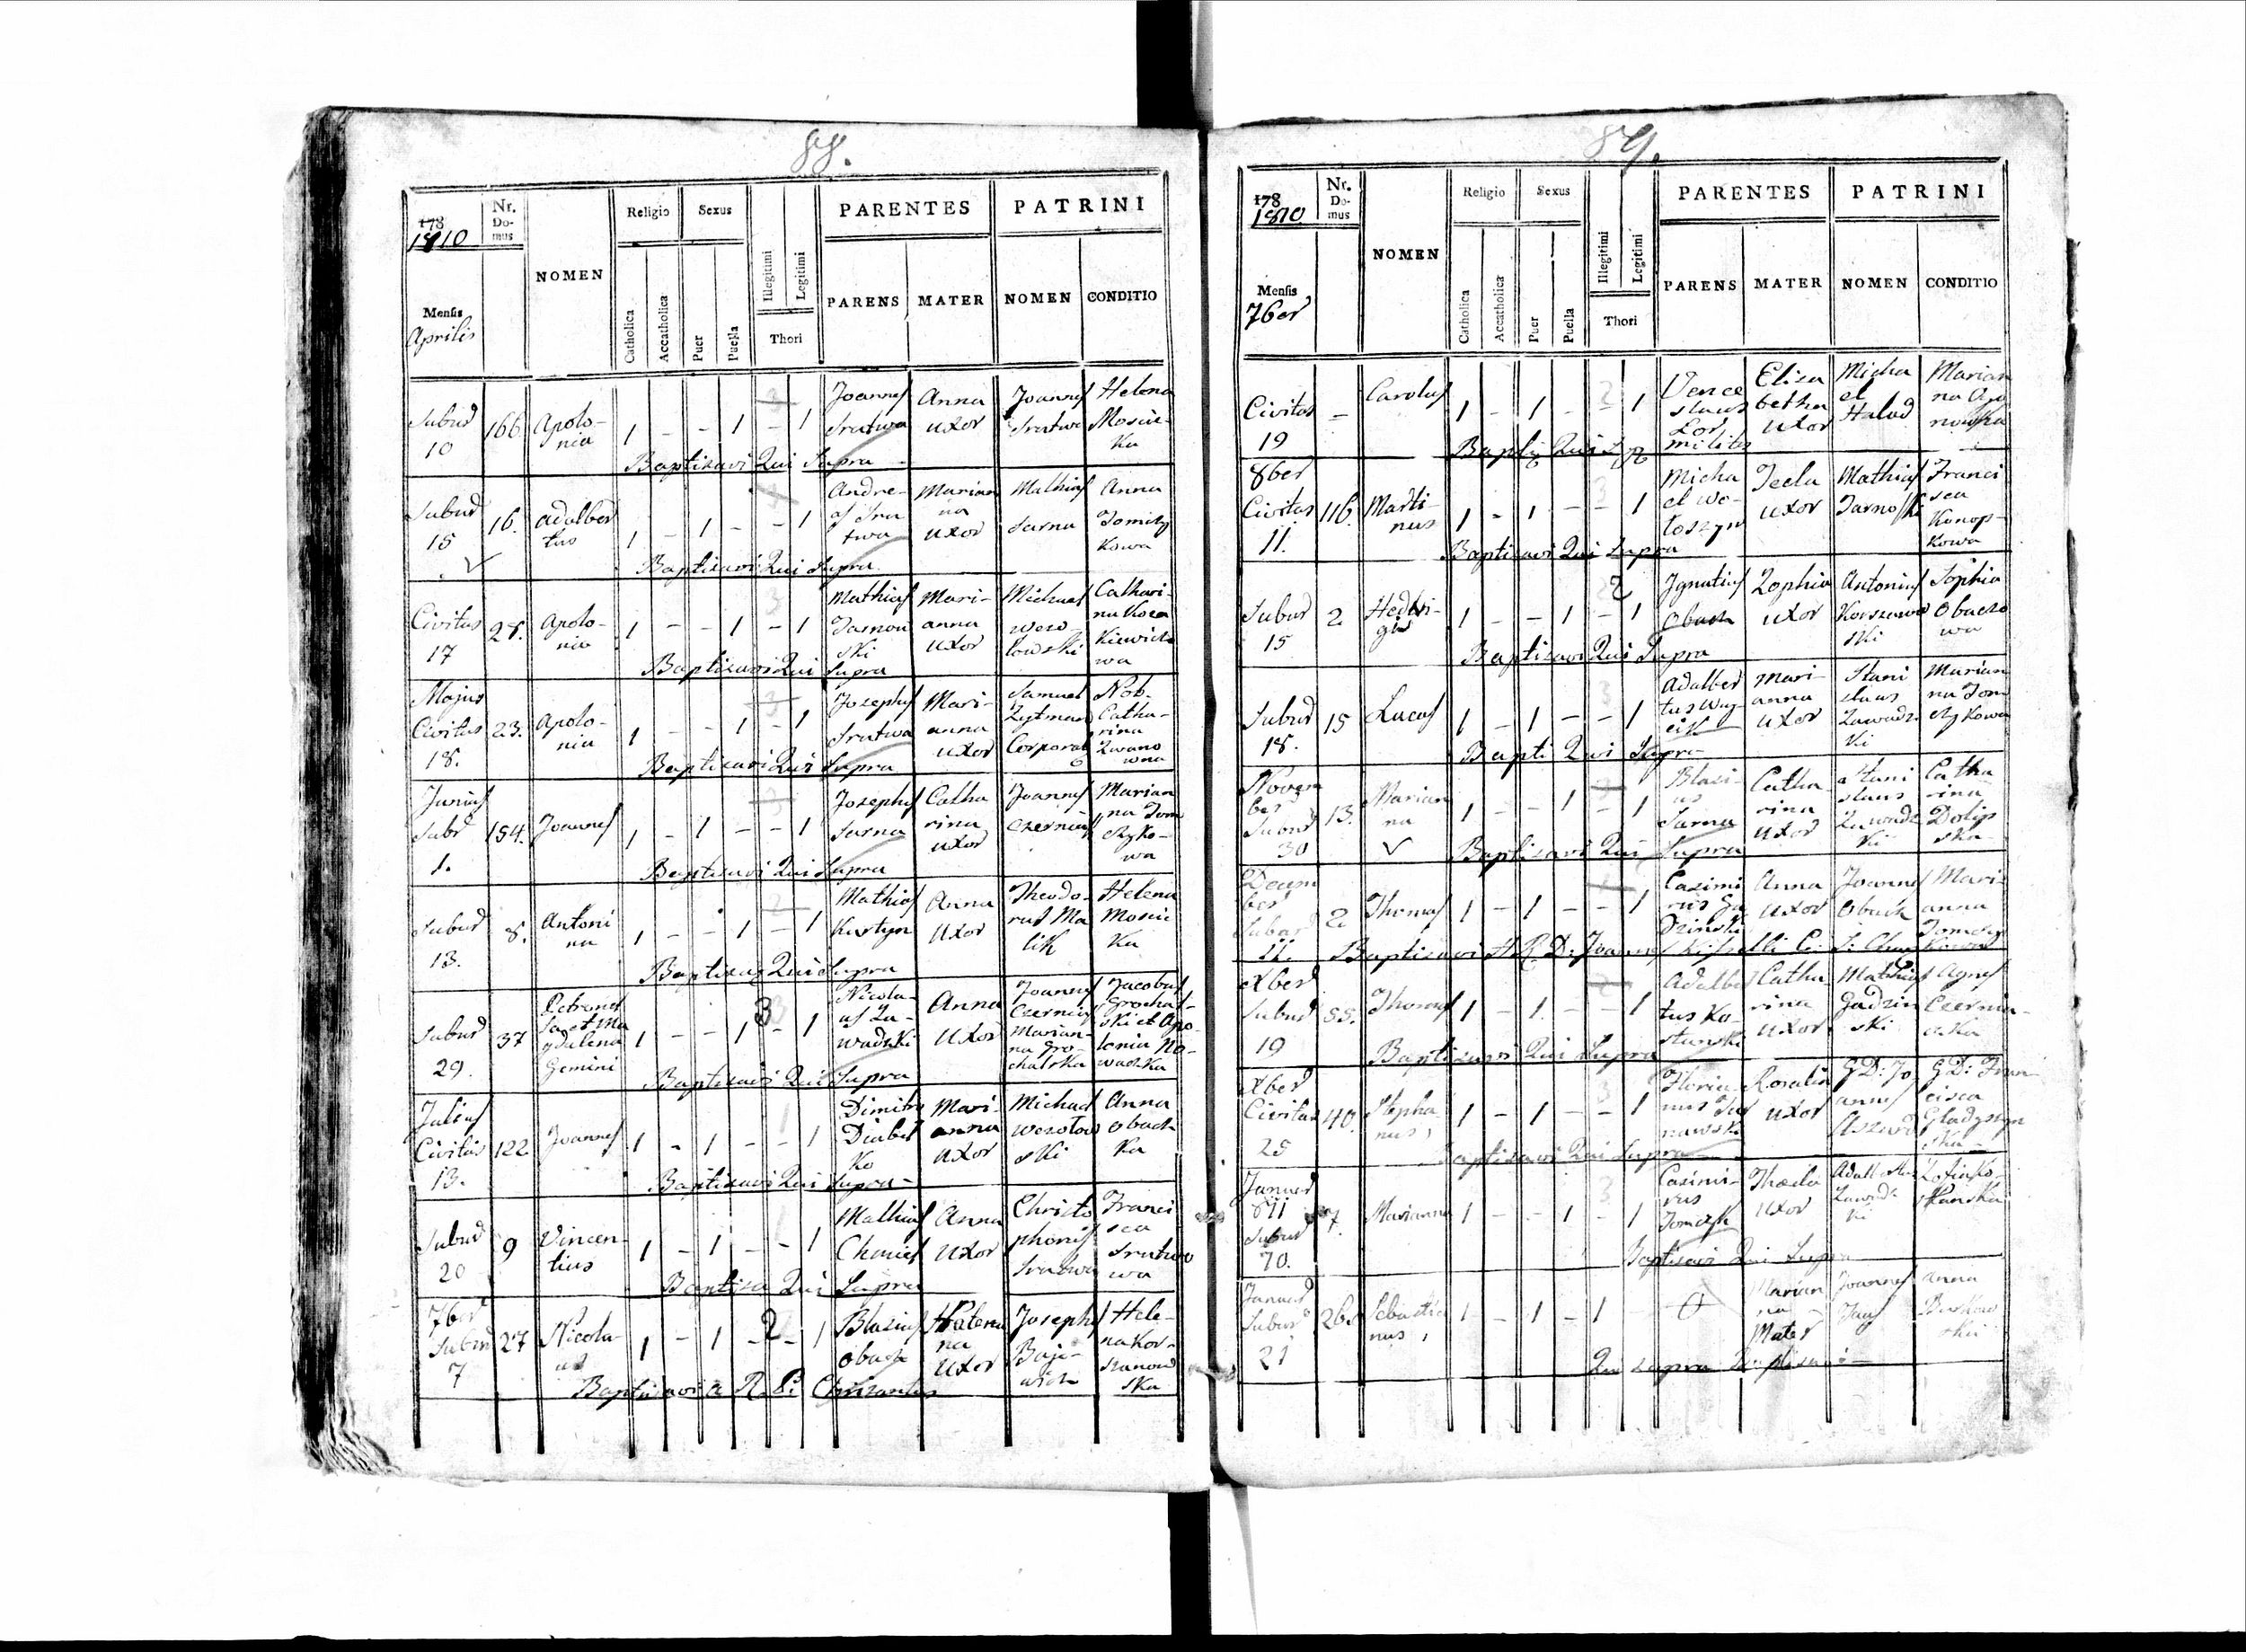 88.
178
1810
Nr.
Do-
mus
NOMEN
Religio
Sexus
Illegitimi
Legitimi
Thori
PARENTES
PATRINI
Mensis
Aprilis
Catholica
Accatholica
Puer
Puella
PARENS
MATER
NOMEN
CONDITIO
Subur 10 166. Apolo-
nia 1 - - 1 - 1
Joannes
Srutwa
Anna
uxor
Joannes
Srutwa
Helena
Mosiic-
ka
Baptisavi Qui Supra
Subur 15 16. Adalber
tus 1 - 1 - - 1
Andre-
as Sru
twa
Marian
na
uxor
Mathias
Sarna
Anna
Tomczy
kowa
Baptisavi Qui Supra
Civitas 17 28. Apolo-
nia 1 - - 1 - 1
Mathias
Tarnow
ski
Mari-
anna
uxor
Michael
weso-
lowski
Cathari-
na
kiewiczo
wa
Baptisavi Qui Supra
Majus
Civitas 18. 23. Apolo-
nia 1 - - 1 - 1
Josephus
Srutwa
Mari-
anna
uxor
Samuel
Zeytman
Corporal
Nob.
Catha-
rina
Baptisavi Qui Supra
Junius
Subr 1. 154. Joannes 1 - 1 - - 1
Josephus
Sarna
Catha
rina
uxor
Joannes
Czernias
Marian
na Tom
czyko-
wa
Baptisavi Qui Supra
Subur 13. 8. Antoni
na 1 - - 1 - 1
Mathias
Kustyn
Anna
uxor
Theodo-
rus Ma
lik
Helena
Mosiic
ka
Baptisav Qui Supra
Subur 29. 37 Petronel
la et Ma
gdalena
Gemini 1 - - 1 3 - 1
Nicola-
us Za-
wadzki
Anna
uxor
Joannes
Czernias
Marian-
na Gro-
chalska
Jacobus
Grochal-
ski et Apo-
lonia No-
wacka
Baptisavi Qui Supra
Julius
Civitas 13. 122 Joannes 1 - 1 - - 1
Dimitry
Diabel
ko
Mari-
anna
uxor
Michael
wesolow
ski
Anna
obach
ka
Baptisavi Qui Supra
Subur 20 9 Vincen-
tius 1 - 1 - - 1
Mathias
Chmiel
Anna
uxor
Christo
phorus
Srutwa
Franci
sca
Srutwo
wa
Baptisa Qui Supra
7ber
Subur 7 27 Nicola-
us 1 - 1 - 2 - 1
Blasius
obach
na
uxor
Josephus
Baje-
wicz
Hele-
na Kor-
szanow
ska
Baptisavi
89.
178
1810.
Nr.
Do-
mus
NOMEN
Religio
Sexus
Illegitimi
Legitimi
Thori
PARENTES
PATRINI
Mensis
7ber
Catholica
Accatholica
Puer
Puella
PARENS
MATER
NOMEN
CONDITIO
Civitas 19 - Carolus 1 - 1 - - 1
Vence
slaus
militis
Elisa
betha
uxor
Micha
el
Halad
Marian
na
Baptiz Qui
8ber
Civitas 11. 116. Marti-
nus 1 - 1 - - 1
Micha
el Wo-
loszyn
Tecla
uxor
Mathias
Tarnoski
Franci
sca
Konop-
kowa
Baptisavi Qui Supra
Subur 15 2. Hedvi-
gis 1 - - 1 - 1
Ignatius
obach
Zophia
uxor
Antonius
Korszanow
ski
Sophia
Obacho
wa
Baptisavi Qui Supra
Subur 18. 15 Lucas 1 - 1 - - 1
Adalber
tus Woy-
cik
Mari-
anna
uxor
Stani
slaus
Zawadz
ki
Marian
na Tom
czykowa
Bapti Qui Supra
Novem
ber
Subur 30 13. Marian
na 1 - - 1 - 1
Blasi-
us
Sarna
Catha-
rina
uxor
Stani
slaus
Zawadz
ki
Catha
rina
Dolip
ska
Baptisavi Qui Supra
Decem
ber
Subur 11. 2 Thomas 1 - 1 - - 1
Casimi
rus Ga
dzinski
Anna
uxor
Joannes
Obach
Mari-
anna
Tomczy
kowa
Baptisavi A. R. D. Joannes
Xber
Subur 19 55. Thomas 1 - 1 - - 1
Adalber
tus Ko-
stunski
Catha
rina
uxor
Mathias
Gadzin
ski
Agnes
Czernia-
cka
Baptisavi Qui Supra
Xber
Civitas 25 40. Stepha
nus 1 - 1 - - 1
Floria-
nus Tar
nawski
Rosalia
uxor
GD: Jo
annes
GD: Fran
cisca
Gladyszyn
ska
Baptisavi Qui Supra
Januar
811
Subur 10. 7. Marianna 1 - - 1 - 1
Casimi-
rus
Tomczyk
Thecla
uxor
Zawadz
ki
Baptisavi Qui Supra
Januar
Subur 21 26. Sebastia
nus 1 - 1 - 1 - 0
Marian
na
Mater
Joannes
Anna
Qui supra Baptisavi